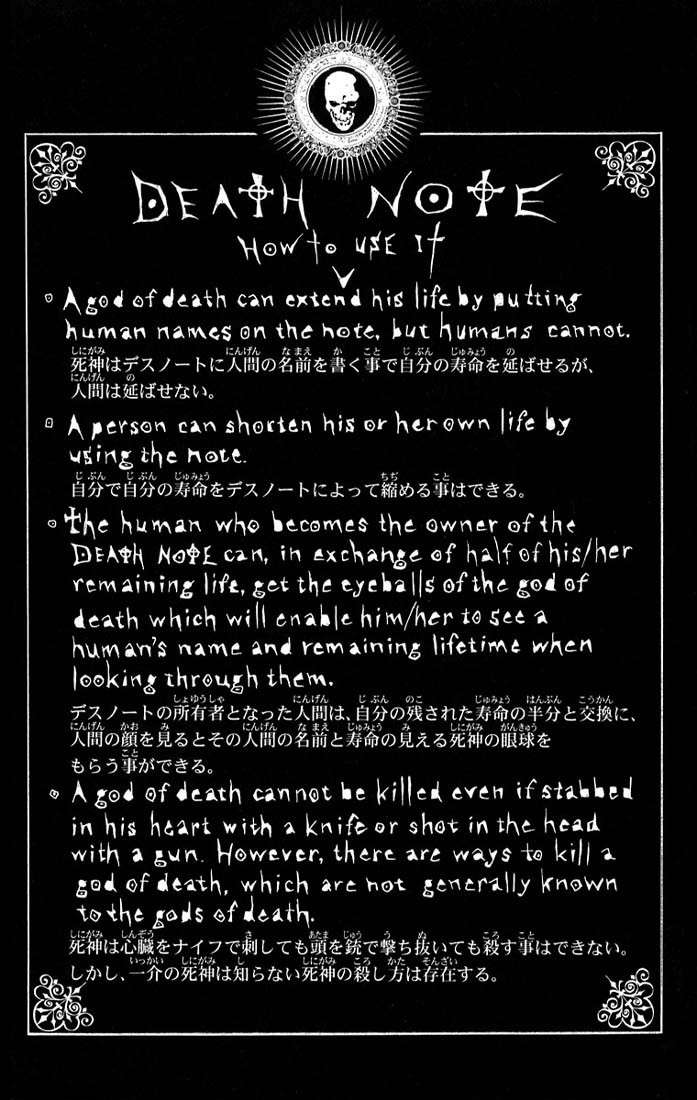 DEATH NOTE
HOW to USE It
A god of death can extend his life by putting
human names on the note, but humans cannot.
死神はデスノートに人間の名前を書く事で自分の寿命を延ばせるが、
人間は延ばせない。
A person can shorten his or her own life by
using the note.
自分で自分の寿命をデスノートによって縮める事はできる。
The human who becomes the owner of the
DEATH NOTE can, in exchange of half of his/her
remaining life, get the eyeballs of the god of
death which will enable him/her to see a
human's name and remaining lifetime when
looking through them.
デスノートの所有者となった人間は、自分の残された寿命の半分と交換に、
人間の顔を見るとその人間の名前と寿命の見える死神の眼球を
もらう事ができる。
A god of death cannot be killed even if stabbed
in his heart with a knife or shot in the head
with a gun. However, there are ways to kill a
god of death, which are not generally known
to the gods of death.
死神は心臓をナイフで刺しても頭を銃で撃ち抜いても殺す事はできない。
しかし、一介の死神は知らない死神の殺し方は存在する。